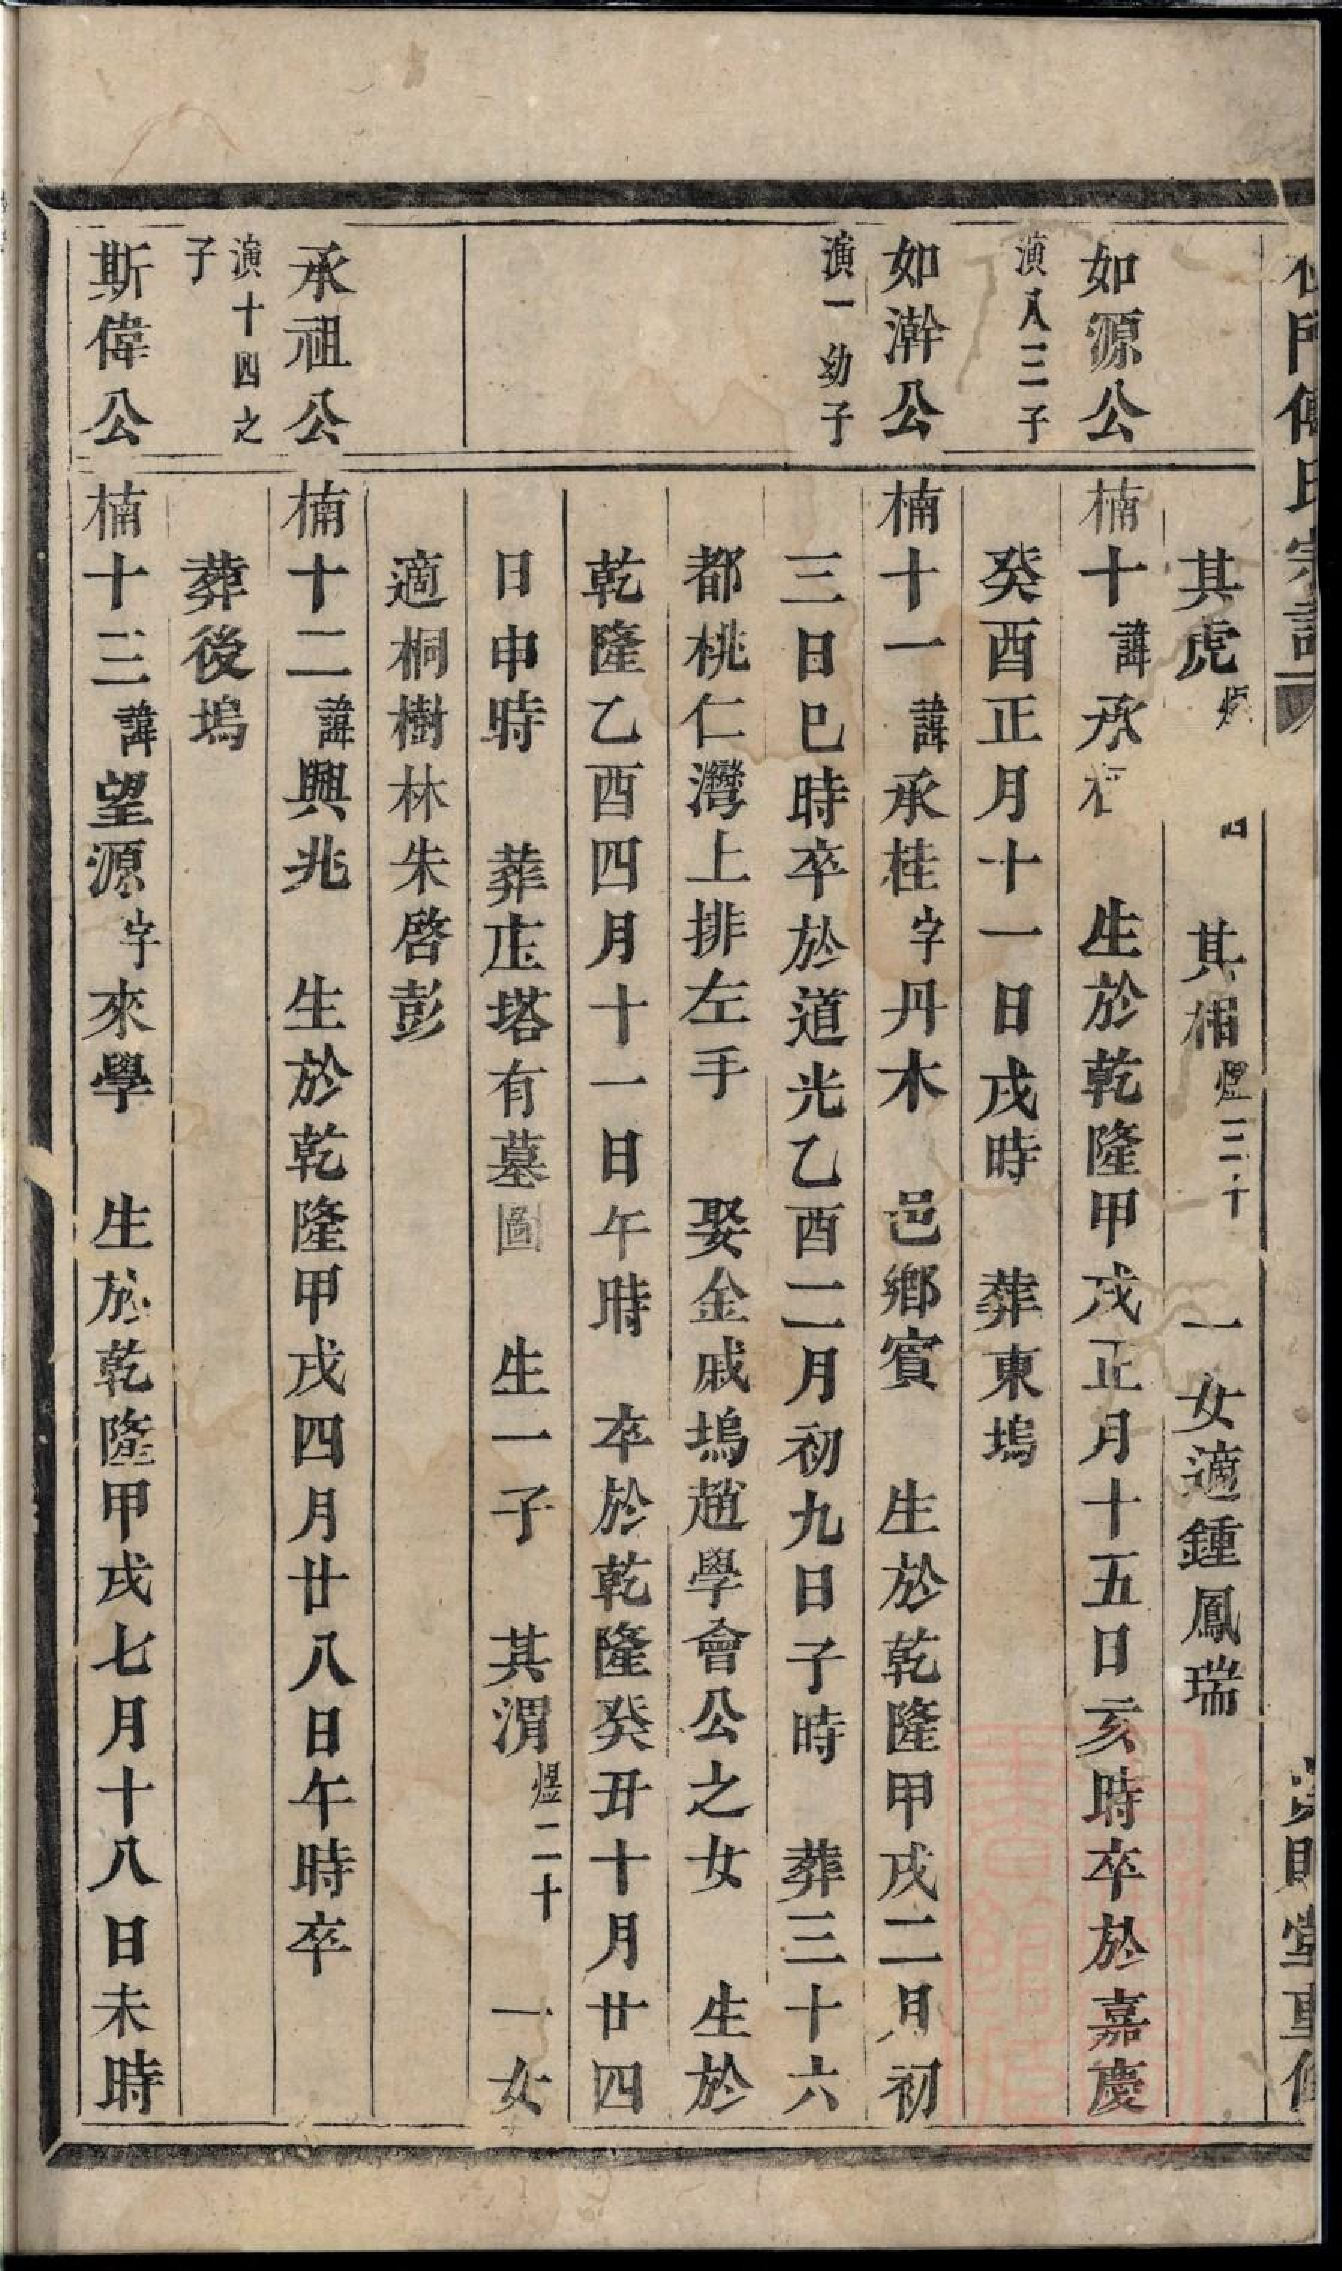 門傅氏宗譜
堂重修
其虎 其相煜三十 一女適鍾鳳瑞
如源公
演八三子
楠十諱承 生於乾隆甲戌正月十五日亥時卒於嘉慶
癸酉正月十一日戌時 葬東塢
如澣公
演一幼子
楠十一諱承桂字丹木 邑鄉賓 生於乾隆甲戌二月初
三日巳時卒於道光乙酉二月初九日子時 葬三十六
都桃仁灣上排左手 娶金戚塢趙學會公之女 生於
乾隆乙酉四月十一日午時 卒於乾隆癸丑十月廿四
日申時 葬庄塔有墓圖 生一子 其渭煜二十 一女
適桐樹林朱啓彭
承祖公
演十四之
子
楠十二諱興兆 生於乾隆甲戌四月廿八日午時卒
葬後塢
斯偉公
楠十三諱望源字來學 生於乾隆甲戌七月十八日未時